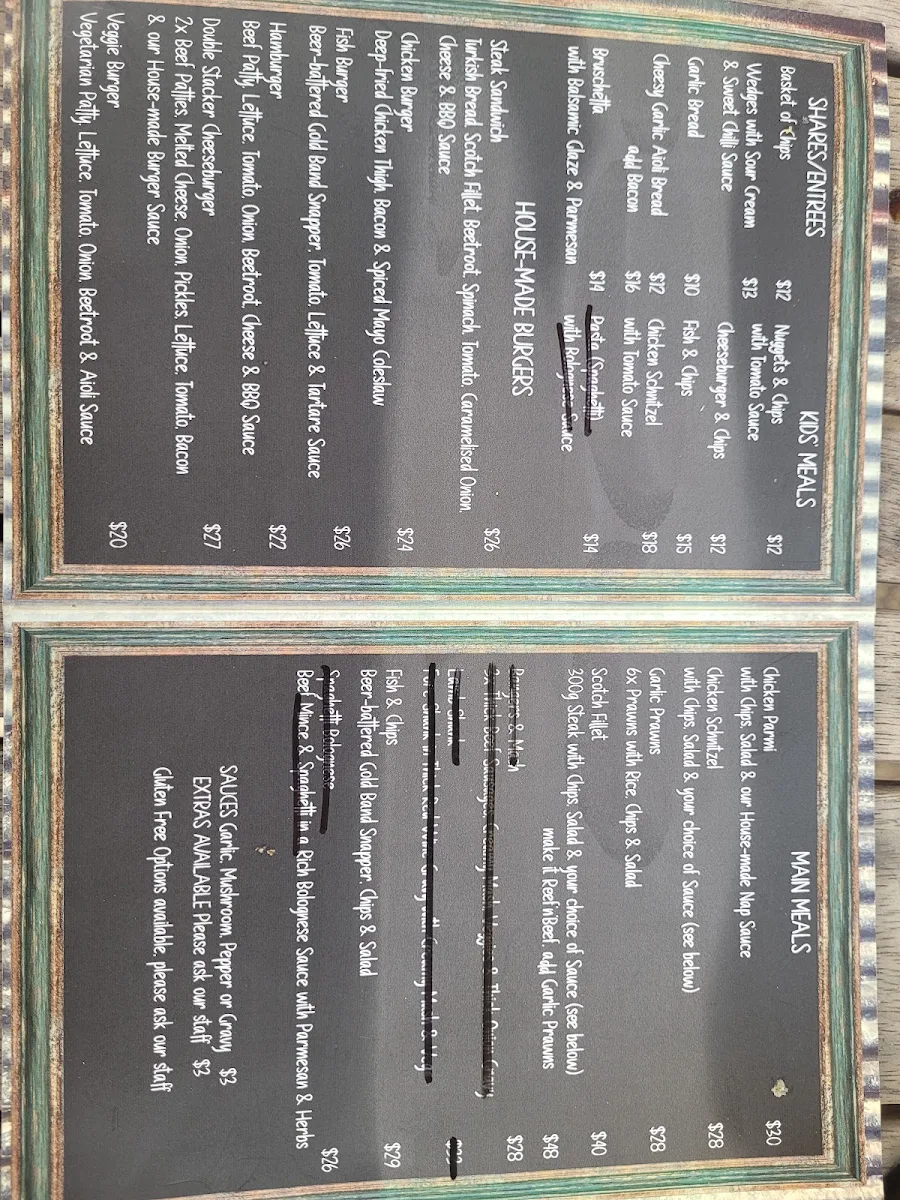 SHARES/ENTREES
Basket of Chips $12
Wedges with Sour Cream $13
& Sweet Chilli Sauce
Garlic Bread $10
Cheesy Garlic Aioli Bread $12
add Bacon $16
Bruschetta $14
with Balsamic Glaze & Parmesan
KIDS' MEALS
Nuggets & Chips $12
with Tomato Sauce
Cheeseburger & Chips $12
Fish & Chips $15
Chicken Schnitzel $18
with Tomato Sauce
Pasta (Spaghetti) $14
with Bolognese Sauce
HOUSE-MADE BURGERS
Steak Sandwich $26
Turkish Bread, Scotch Fillet, Beetroot, Spinach, Tomato, Caramelised Onion,
Cheese & BBQ Sauce
Chicken Burger $24
Deep-fried Chicken Thigh, Bacon & Spiced Mayo Coleslaw
Fish Burger $26
Beer-battered Gold Band Snapper, Tomato, Lettuce & Tartare Sauce
Hamburger $22
Beef Patty, Lettuce, Tomato, Onion, Beetroot, Cheese & BBQ Sauce
Double Stacker Cheeseburger $27
2x Beef Patties, Melted Cheese, Onion, Pickles, Lettuce, Tomato, Bacon
& our House-made Burger Sauce
Veggie Burger $20
Vegetarian Patty, Lettuce, Tomato, Onion, Beetroot & Aioli Sauce
MAIN MEALS
Chicken Parmi $30
with Chips, Salad & our House-made Nap Sauce
Chicken Schnitzel $28
with Chips, Salad & your choice of Sauce (see below)
Garlic Prawns $28
6x Prawns with Rice, Chips & Salad
Scotch Fillet $40
300g Steak with Chips, Salad & your choice of Sauce (see below)
make it Reef'n'Beef, add Garlic Prawns $48
Bangers & Mash $28
3x Thick Beef Sausages, Creamy Mash
Lamb Shank
Fish & Chips $29
Beer-battered Gold Band Snapper, Chips & Salad
Spaghetti Bolognese $26
Beef Mince & Spaghetti in a Rich Bolognese Sauce with Parmesan & Herbs
SAUCES Garlic, Mushroom, Pepper or Gravy $3
EXTRAS AVAILABLE Please ask our staff $3
Gluten Free Options available, please ask our staff